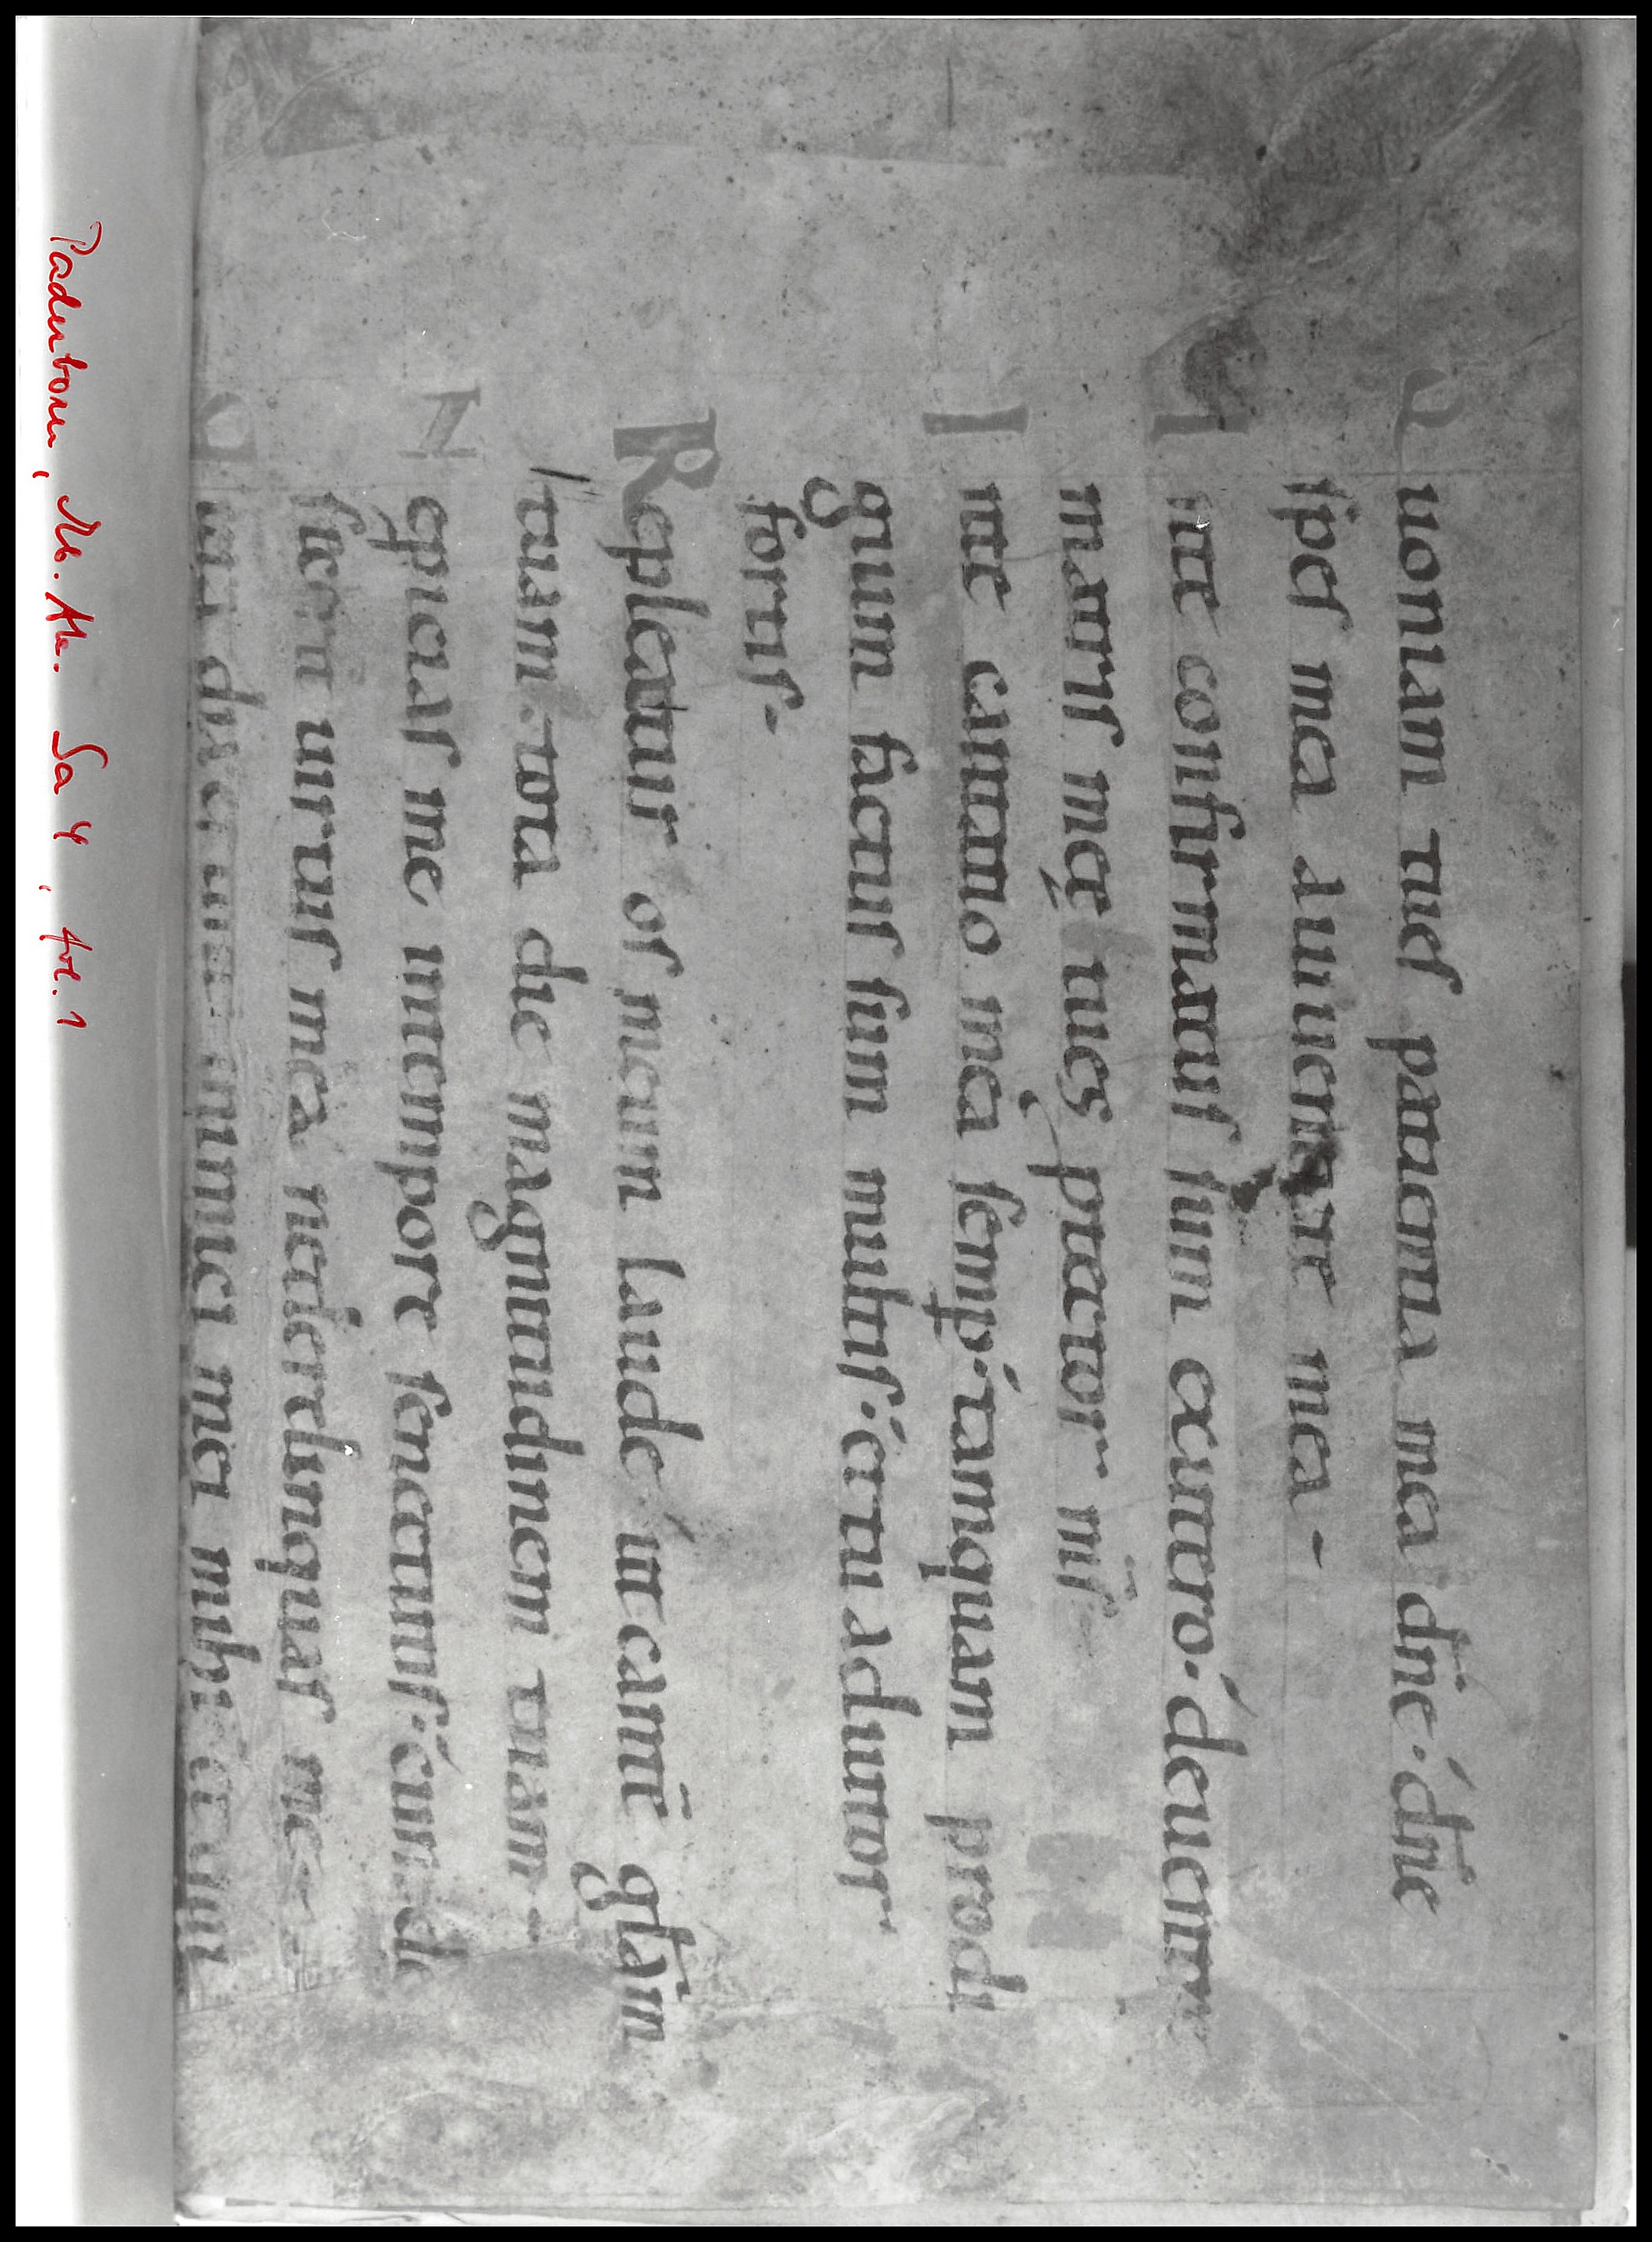 Quoniam tu es patientia mea dñe· dñe
spes mea a iuuentute mea-
In te confirmatus sum exutero· deuentre
matris meę tu es ptector ms
In te cantatio mea semp· tamquam prodi
gium factus sum multis· ettu adiutor
fortis-
Repleatur os meum laude ut cantē głam
tuam· tota die magnitudinem tuam-
Ne picias me intempore senectutis· cum de
fecerit uirtus mea nederelinquas me-
inimici mei mihi· et qui
Paderborn, Ab. Hs. Sa 4, fol. 1